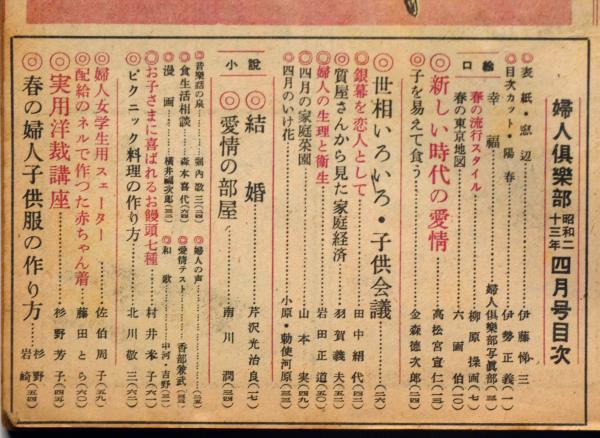 婦人倶樂部 昭和二十三年 四月号目次
◎表紙・窓辺……伊藤悌三
◎目次カット・陽春……伊勢正義(一)
口絵
幸福……婦人倶樂部写眞部(三)
春の流行スタイル……柳原操画(七)
春の東京地図……六画伯(一〇)
◎新しい時代の愛情……高松宮宣仁(一三)
◎子を易えて食う……金森徳次郎(二四)
◎世相いろいろ・子供会議……(二六)
◎銀幕を恋人として……田中絹代(四二)
◎質屋さんから見た家庭経済……羽賀義夫(五二)
◎婦人の生理と衛生……岩田正道(五〇)
◎四月の家庭菜園……山本実(四九)
◎四月のいけ花……小原・勅使河原(三三)
小説
◎結婚……芹沢光治良(一七)
◎愛情の部屋……南川潤(三四)
◎音樂話の泉……堀内敬三(四)
◎食生活相談……森本喜代(六四)
◎漫画……横井福次郎(三二)
◎婦人の声……(三五)
◎愛情テスト……香部兼武(三三)
◎和歌……中河・吉野(三二)
◎お子さまに喜ばれるお饅頭七種……村井米子(六一)
◎ピクニック料理の作り方……北川敬三(六二)
◎婦人女学生用スェーター……佐伯周子(五九)
◎配給のネルで作つた赤ちゃん着……藤田とら(六〇)
◎実用洋裁講座……杉野芳子(四五)
◎春の婦人子供服の作り方……杉野・岩崎(五四)